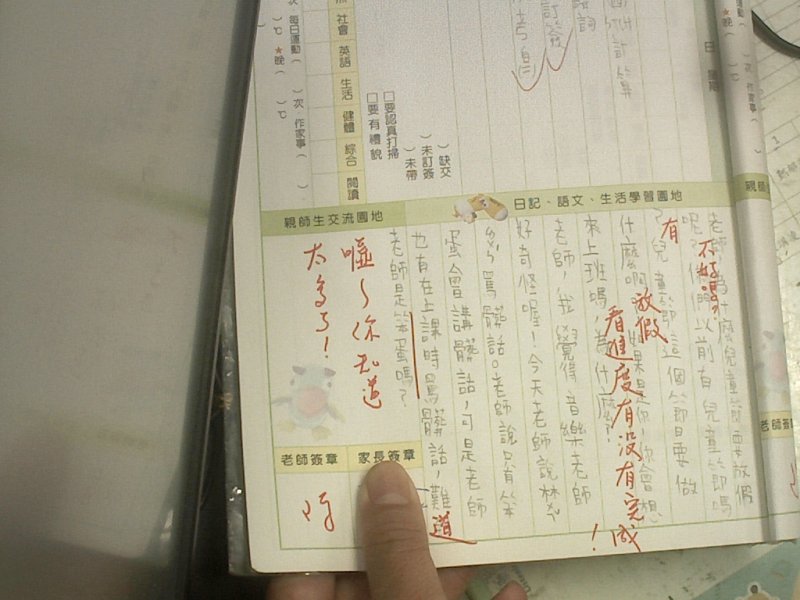 老師為什麼兒童節要放假
呢？你們以前有兒童節嗎
？兒童節這個節日要做
什麼啊？如果是你，你會想
來上班嗎，為什麼？
老師，我覺得音樂老師
好奇怪喔！今天老師說林
罵髒話。老師說只有笨
蛋會講髒話，可是老師
也有在上課時罵髒話，難道
老師是笨蛋嗎？
不好嗎？
有
放假
看進度有沒有完成！
噓～你知道
太多了！
日記、語文、生活學習園地
親師生交流園地
家長簽章
老師簽章
社會
英語
生活
健體
綜合
閱讀
□要認真打掃
□要有禮貌
）缺交
）未訂簽
）未帶
次 每日運動（
）次 作家事（
★晚（